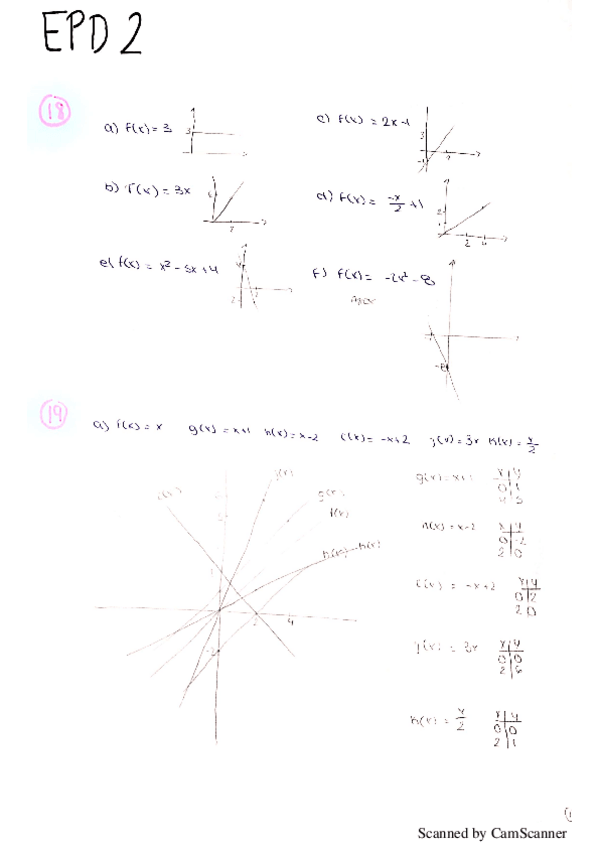 EPD 2
18
a) f(x) = 3
c) f(x) = 2x-1
b) f(x) = 3x
d) f(x) = -x/2 + 1
e) f(x) = x² - 5x + 4
f) f(x) = -2x² - 8
19
a) f(x) = x g(x) = x+1 h(x) = x-2 i(x) = -x+2 j(x) = 3x k(x) = x/2
i(x) j(x)
g(x)
f(x)
h(x) k(x)
2 4
-2
g(x) = x+1
x y
0 1
h(x) = x-2
x y
0 -2
2 0
i(x) = -x+2
x y
0 2
2 0
j(x) = 3x
x y
0 0
2 6
k(x) = x/2
x y
0 0
2 1
Scanned by CamScanner